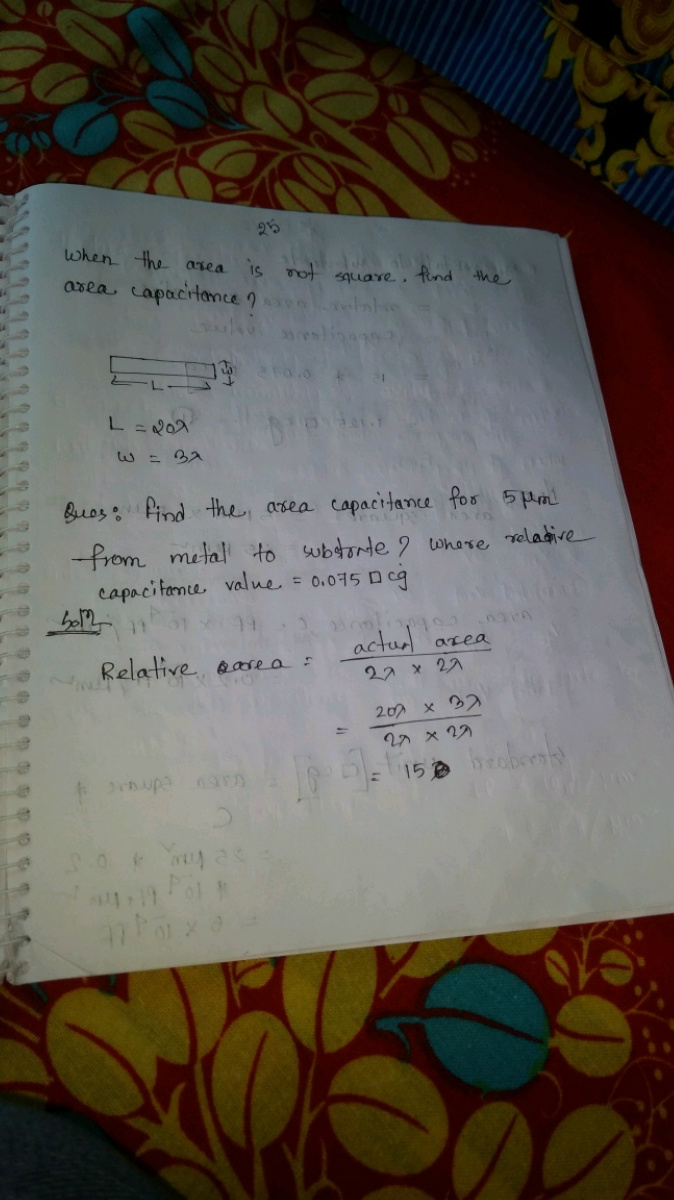 25
When the area is not square. find the
area capacitance?
L
L = 20λ
W = 3λ
Ques: find the area capacitance for 5 μm
from metal to substrate? where relative
capacitance value = 0.075 □ cg
Soln
Relative area = actual area
2λ × 2λ
= 20λ × 3λ
2λ × 2λ
= 15